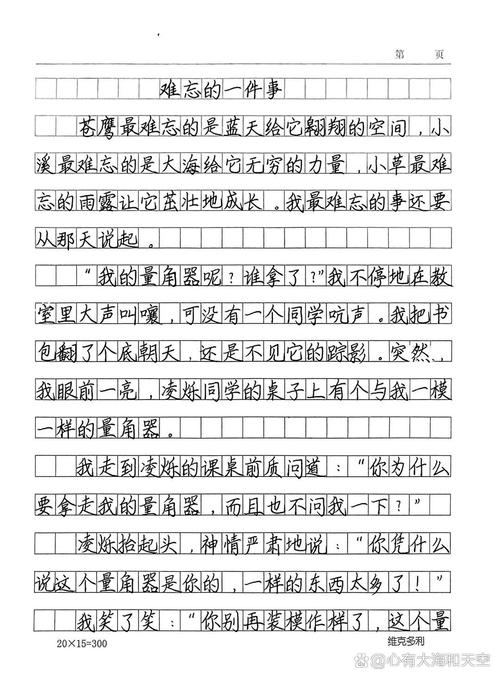 第 页
难忘的一件事
苍鹰最难忘的是蓝天给它翱翔的空间，小
溪最难忘的是大海给它无穷的力量，小草最难
忘的雨露让它茁壮地成长。我最难忘的事还要
从那天说起。
“我的量角器呢？谁拿了？”我不停地在教
室里大声叫嚷，可没有一个同学吭声。我把书
包翻了个底朝天，还是不见它的踪影。突然，
我眼前一亮，凌烁同学的桌子上有个与我一模
一样的量角器。
我走到凌烁的课桌前质问道：“你为什么
要拿走我的量角器，而且也不问我一下？”
凌烁抬起头，神情严肃地说：“你凭什么
说这个量角器是你的，一样的东西太多了！”
我笑了笑：“你别再装模作样了，这个量
20×15=300 维克多利
头条 @心有大海和天空